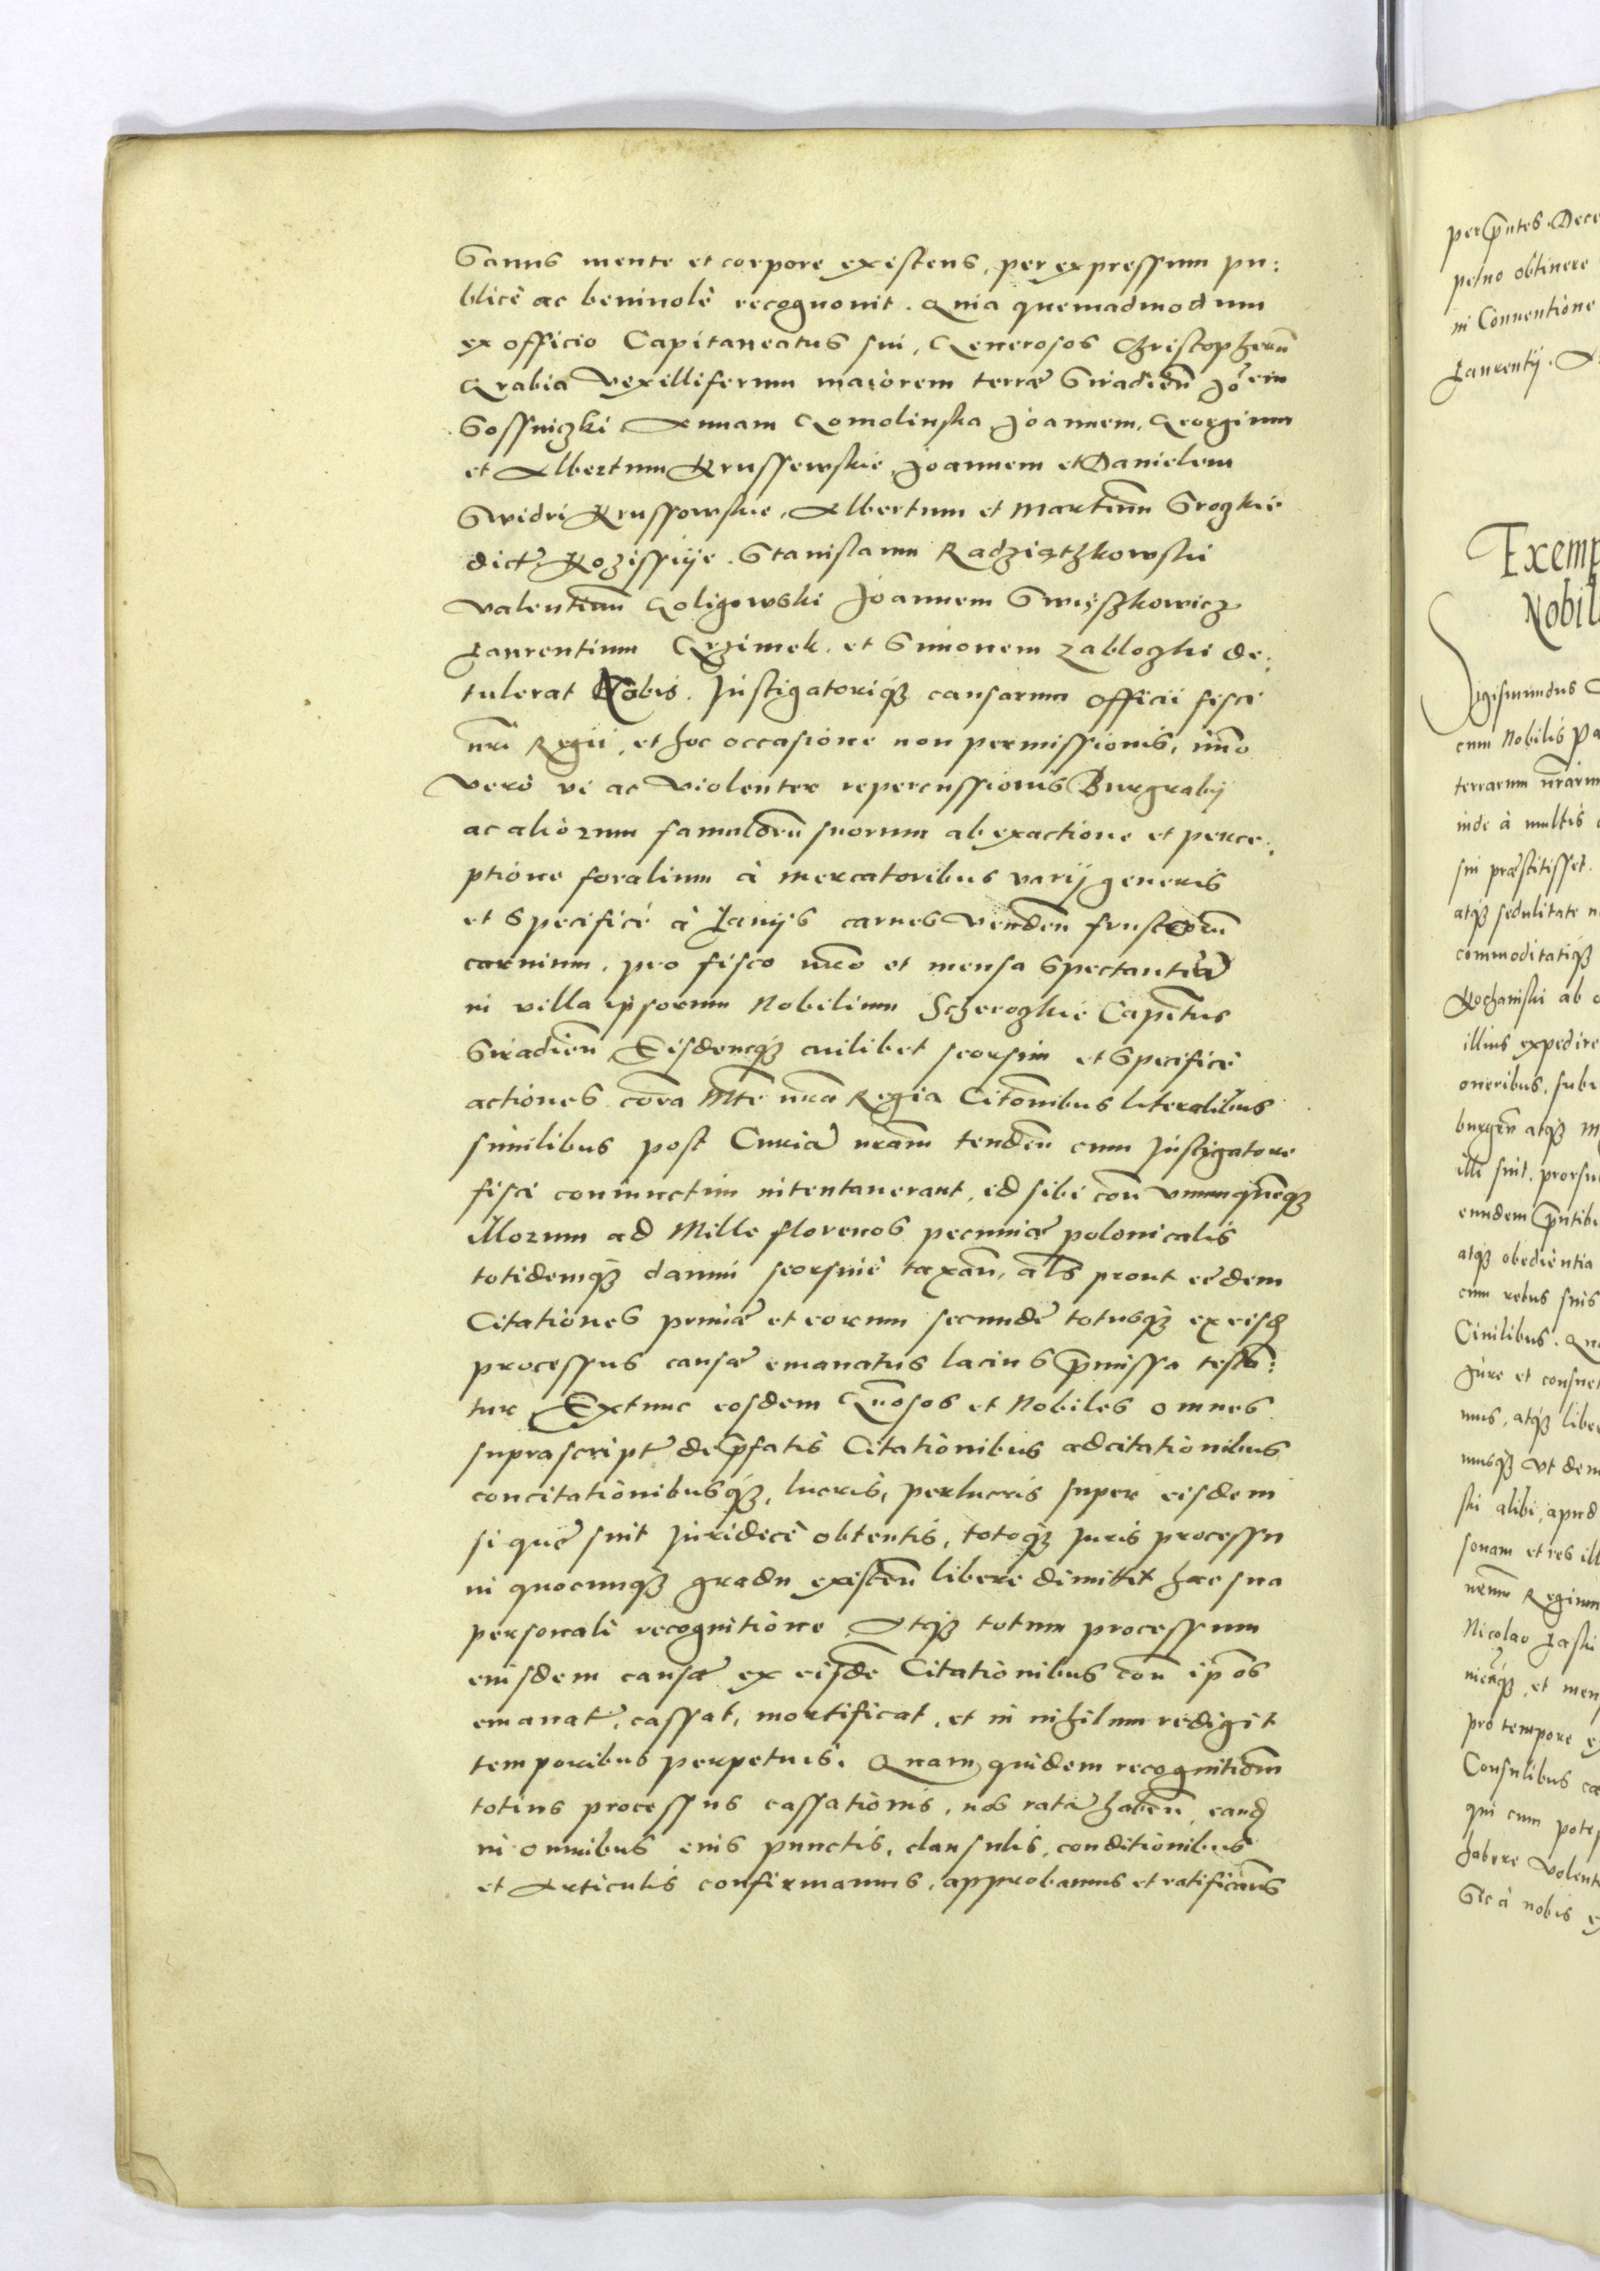 Sanus mente et corpore existens, per expressum pu:
blicè ac beniuolè recognouit. Quia quemadmodum
ex officio Capitaneatus sui, Generosos Christopherũ
Grabia Vexilliferum maiorem terræ Siradien̄ Joem
Gossniczki Annam Gomolinska Joannem, Georgium
et Albertum Krussewskie, Joannem et Danielem
Swidri Krussowskie, Albertum et Martinum Srogkie
dict Kozissiÿe. Stanislaum Radziątzkowski
Valentinū Goligowski Joannem Swyęszkowicz
Laurentium Grzimek. et Simonem Zablogzki de:
tulerat Nobis. Instigatoriq̄ȝ causarum officii fisci
nrī Regii, et hoc occasione non permissionis, imo
Verò vi ac Violenter repercussionis Burgrabij
ac aliorum famulorū suorum ab exactione et perce:
ptione foralium à mercatoribus varij generis
et specificè à Lanijs carnes venden̄ frustorū
carnium, pro fisco nr̄o et mensa spectantiā
in villa ipsorum Nobilium Szerogkie Capen̄tus
Siradien̄ Eisdemq̄ȝ cuilibet seorsim et specificè
actiones corā Mte nr̄a Regia Citōnibus literalibus
similibus post Curiā nr̄am tenden̄ cum Instigatore
fisci coniunctim intentauerant, id sibi con̄ vnumquēq̄ȝ
illorum ad Mille florenos pecuniæ polonicalis
totidemq̄ȝ damni seorsiuè taxan̄, als prout eędem
Citationes primæ et eorum secundę totusq̄ȝ ex eisd
processus causæ emanatus lacius p̄missa testā:
tur Extunc eosdem Gn̄osos et Nobiles omnes
suprascript de p̄fatis Citationibus adcitationibus
concitationibusq̄ȝ, lucris, perlucris super eisdem
si quæ sint Iuridicè obtentis, totoq̄ȝ Iuris processu
in quocunq̄ȝ gradu existen̄ liberè dimittit hac sua
personali recognitione Atq̄ȝ totum processum
eiusdem causæ ex eisdē Citationibus con̄ ip̄os
emanat, cassat, mortificat, et in nihilum redigit
temporibus perpetuis. Quam quidem recognitionem
totius processus cassationis, nos ratā haben̄, eand
in omnibus eius punctis, clausulis, conditionibus
et Articulis confirmamus, approbamus et ratificam̄s
per p̄ntes. Dece
petuo obtinere
in Conuentione
Laurentij. A
Exemp
Nobil
Sigismundus
cum Nobilis Pa
terrarum nr̄arum
inde à multis
sui præstitisset.
atq̄ȝ sedulitate n
commoditatiq̄ȝ
Kochanski ab o
illius expedire
oneribus, sube
burgen̄ atq̄ȝ M
illi sint. prorsu
eundem p̄ntibu
atq̄ȝ obedientia
cum rebus suis
Ciuilibus. Qua
Jure et consuet
mus, atq̄ȝ liber
musq̄ȝ vt dem
ski alibi, apud
sonam et res ill
nr̄um Regium
Nicolao Laski
nicūq̄ȝ, et men
pro tempore ex
Consulibus cæ
qui cum potes
habere volent
Sic à nobis e